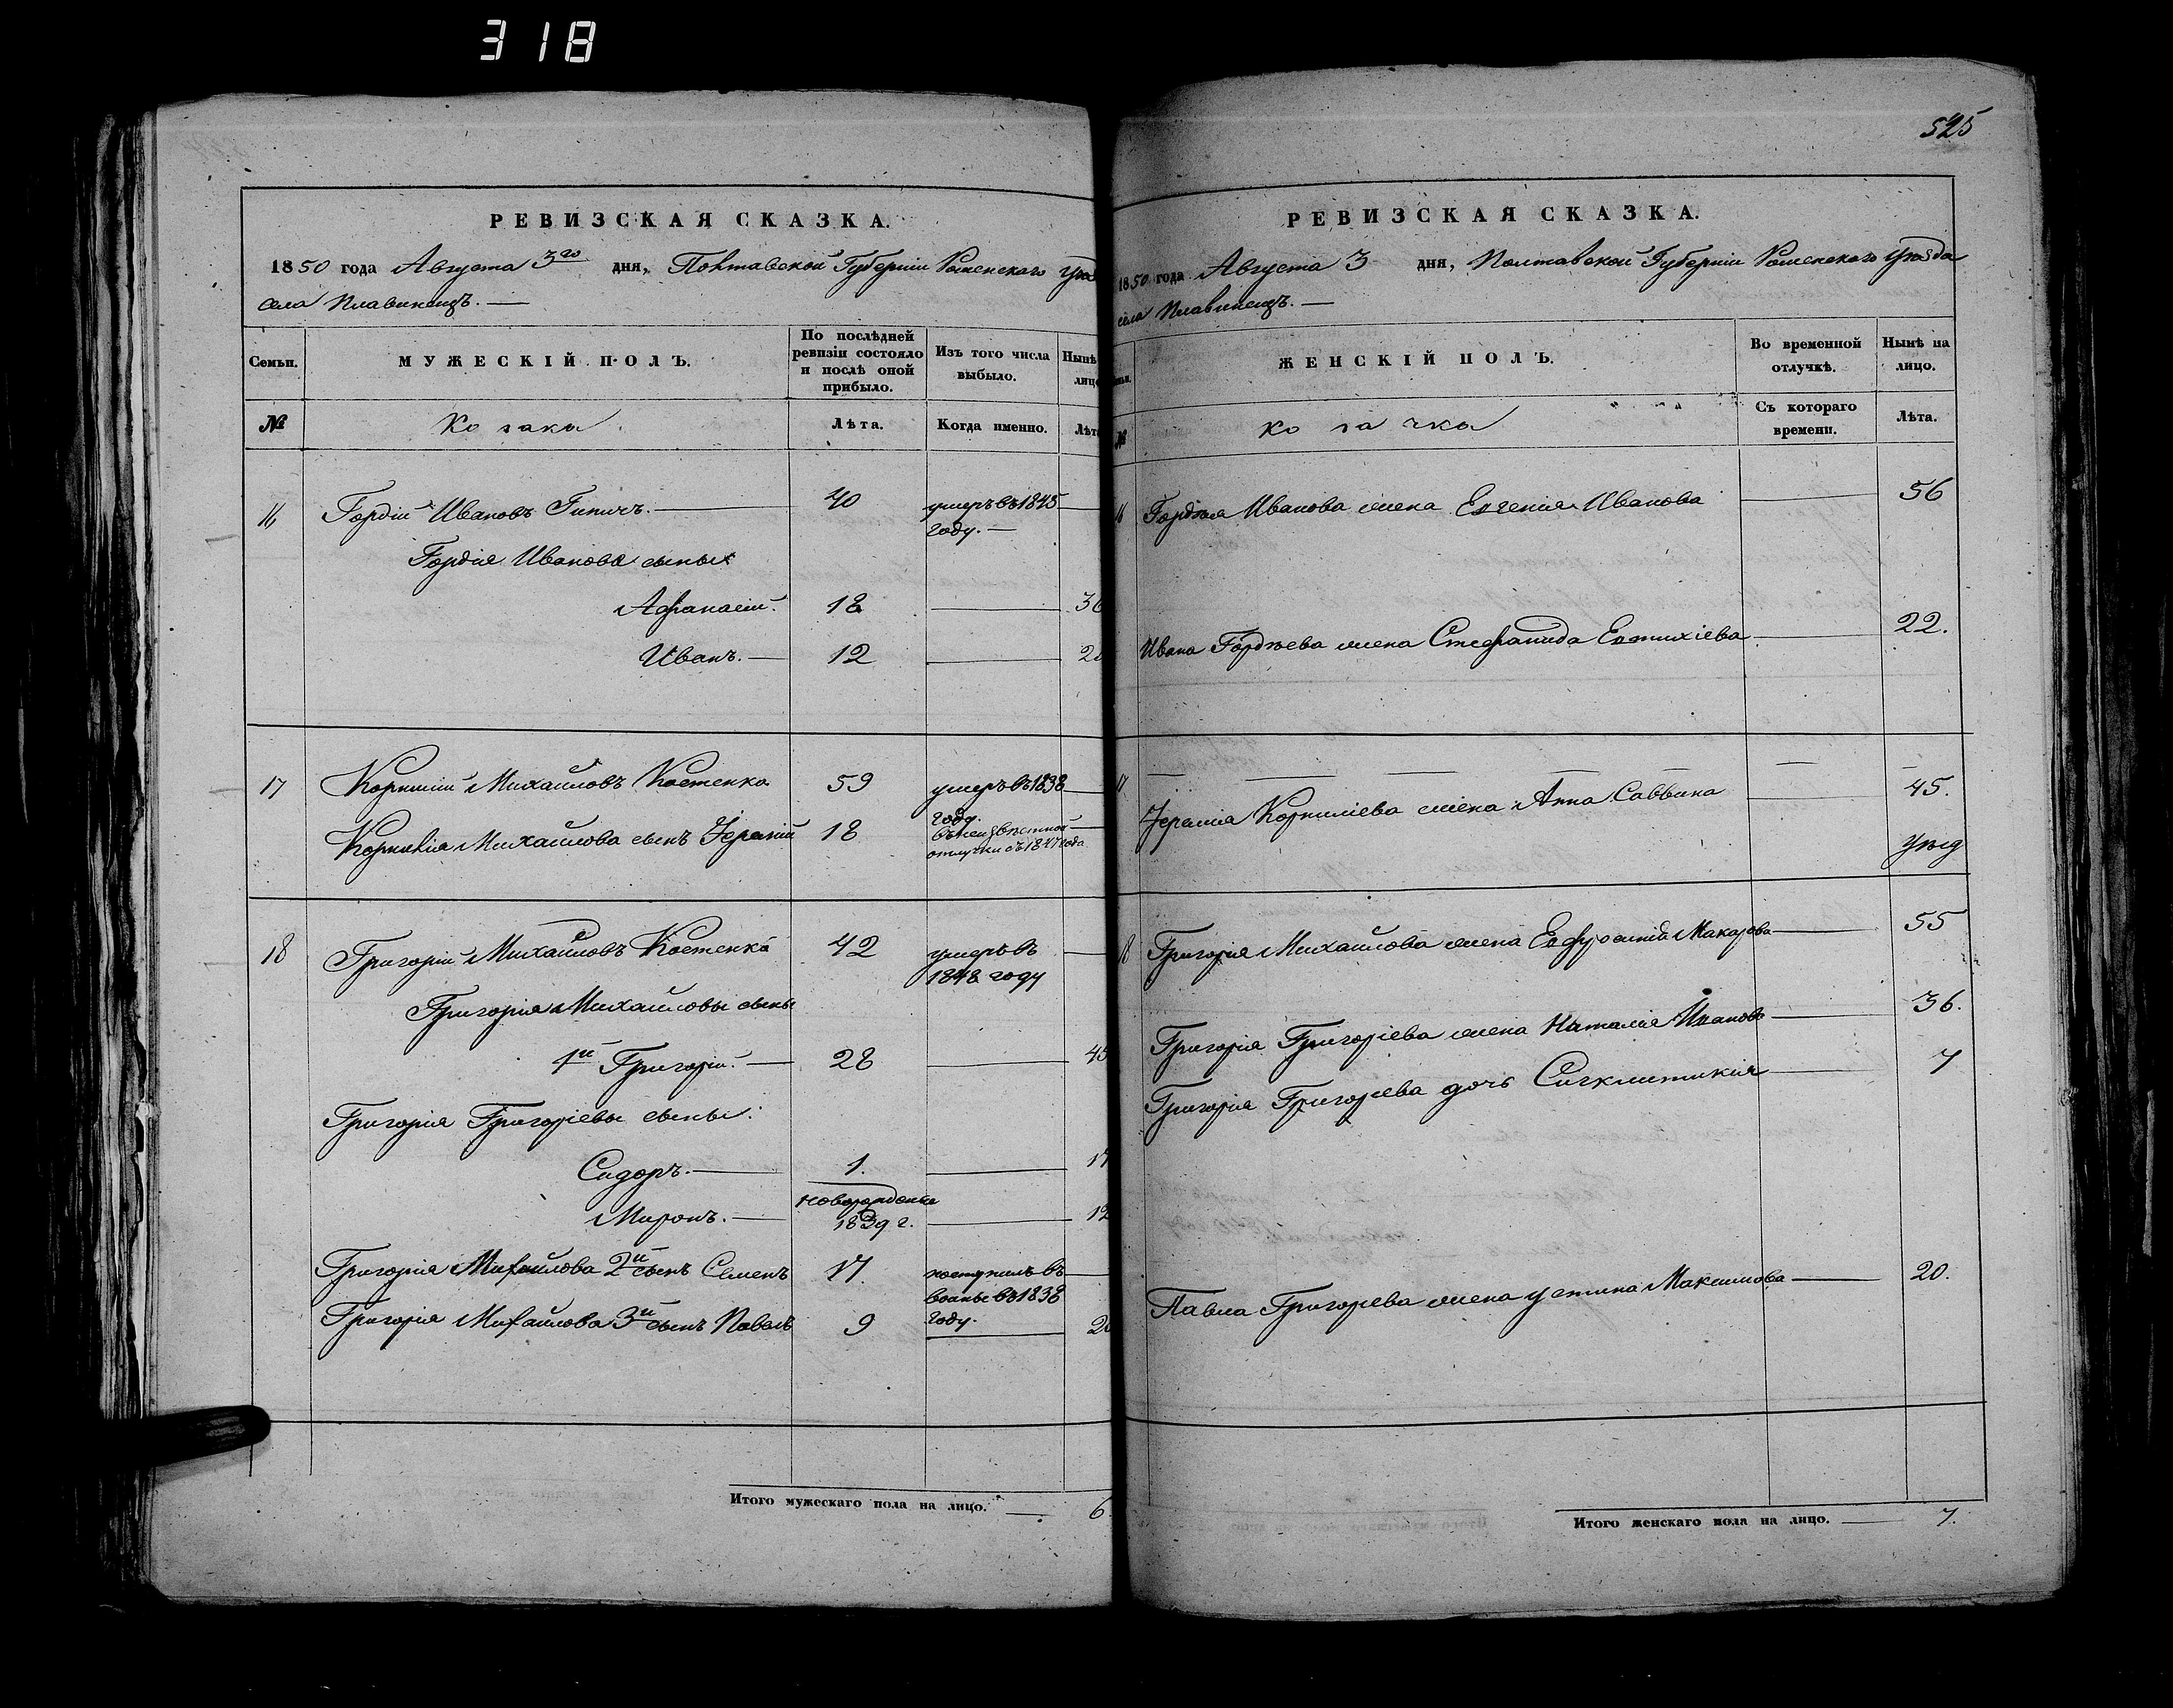 318
РЕВИЗСКАЯ СКАЗКА.
1850 года Августа 3го дня, Полтавской Губерніи Роменскаго
села Плавинищъ.
Семьи.
МУЖЕСКІЙ ПОЛЪ.
По послѣдней ревизіи состояло и послѣ оной прибыло.
Изъ того числа выбыло.
Нынѣ
лицо
№
Козаки
Лѣта.
Когда именно.
Лѣта
16 Гордій Ивановъ 40 умеръ въ 1845
году.
Гордія Иванова сыны
Афанасій. 18
Иванъ. 12
17 Корнилій Михайловъ Костенко 59 умеръ въ 1838
году.
Корнилія Михайлова сынъ Іеремій 18 въ неизвѣстной
отлучки съ 1847 года
18 Григорій Михайловъ Костенко 42 умеръ въ
1848 году
Григорія Михайловы сыны
1й Григорій. 28 45
Григорія Григоріевы сыны:
Сидоръ. 1. 17
новорожденые
Миронъ. 1839 г. 12
Григорія Михайлова 2й сынъ Семенъ 17. поступилъ въ
военые въ 1838
году.
Григорія Михайлова 3й сынъ Павелъ 9
Итого мужескаго пола на лицо. 6.
525
РЕВИЗСКАЯ СКАЗКА.
1850 года Августа 3 дня, Полтавской Губерніи Роменскаго уѣзда
села Плавинищъ.
ЖЕНСКІЙ ПОЛЪ.
Во временной отлучкѣ.
Нынѣ на лицо.
№
козачки
Съ котораго времени.
Лѣта.
16 Гордѣя Иванова жена Евгенія Иванова 56
Ивана Гордѣева жена Стефанида Евтихіева 22.
17
Іеремія Корниліева жена Анна Саввина 45.
18 Григорія Михайлова жена Евфросинія Макарова 55
Григорія Григоріева жена Наталія Иванова 36.
Григорія Григоріева дочь Сигклитикія 7
Павла Григорьева жена Устина Максимова 20.
Итого женскаго пола на лицо. 7.